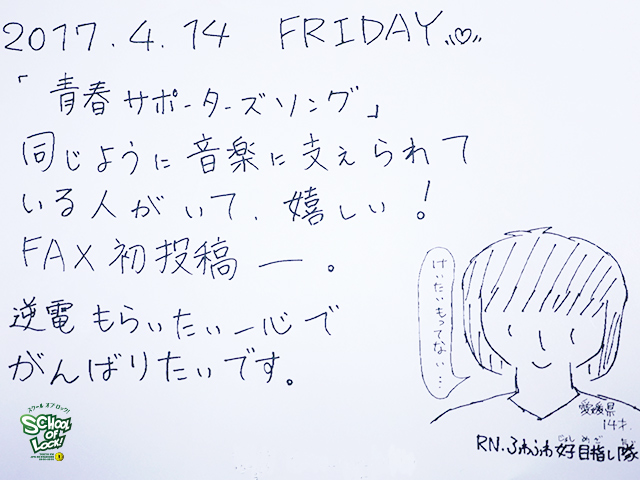 2017.4.14 FRIDAY
「青春サポーターズソング」
同じように音楽に支えられて
いる人がいて、嬉しい!
FAX初投稿ー。
逆電もらいたい一心で
がんばりたいです。
けいたいもってない…
愛媛県
14才.
RN.ふわふわ好目指し隊
スクール オブ ロック!
SCHOOL
OF
LOCK!